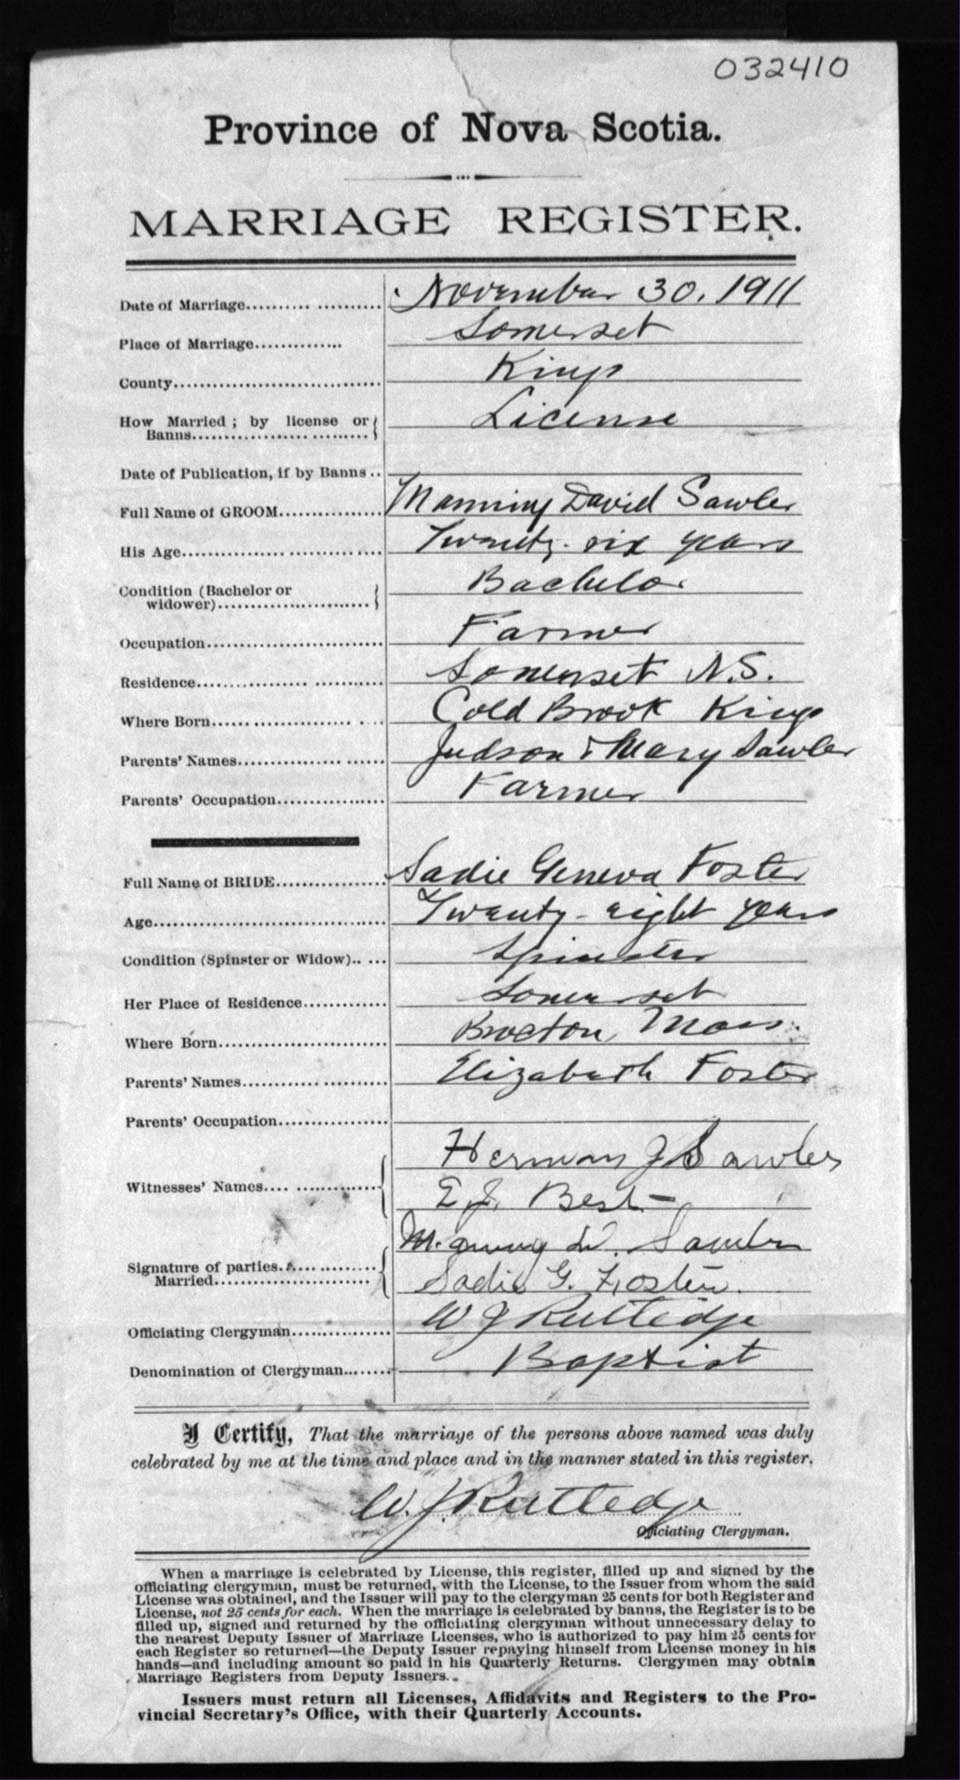 032410
Province of Nova Scotia.
MARRIAGE REGISTER.
Date of Marriage.................... November 30, 1911
Place of Marriage............. Somerset
County............................... Kings
How Married ; by license or License
Banns....................
Date of Publication, if by Banns ..
Full Name of GROOM............... Manning David Sawler
His Age............................. Twenty-six years
Condition (Bachelor or Bachelor
widower).......................
Occupation.......................... Farmer
Residence........................... Somerset N.S.
Where Born......................... Cold Brook Kings
Parents' Names..................... Judson & Mary Sawler
Parents' Occupation................ Farmer
Full Name of BRIDE................ Sadie Geneva Foster
Age................................. Twenty-eight years
Condition (Spinster or Widow)..... Spinster
Her Place of Residence............ Somerset
Where Born......................... Brocton, Mass.
Parents' Names..................... Elizabeth Foster
Parents' Occupation................
Herman J Sawler
Witnesses' Names..................
E. J. Best
Manning D. Sawler
Signature of parties...............
Married....................... Sadie G. Foster.
Officiating Clergyman.............. W J Rutledge
Denomination of Clergyman........ Baptist
I Certify, That the marriage of the persons above named was duly
celebrated by me at the time and place and in the manner stated in this register.
W. J. Rutledge
Officiating Clergyman.
When a marriage is celebrated by License, this register, filled up and signed by the
officiating clergyman, must be returned, with the License, to the Issuer from whom the said
License was obtained, and the Issuer will pay to the clergyman 25 cents for both Register and
License, not 25 cents for each. When the marriage is celebrated by banns, the Register is to be
filled up, signed and returned by the officiating clergyman without unnecessary delay to
the nearest Deputy Issuer of Marriage Licenses, who is authorized to pay him 25 cents for
each Register so returned—the Deputy Issuer repaying himself from License money in his
hands—and including amount so paid in his Quarterly Returns. Clergymen may obtain
Marriage Registers from Deputy Issuers.
Issuers must return all Licenses, Affidavits and Registers to the Pro-
vincial Secretary's Office, with their Quarterly Accounts.